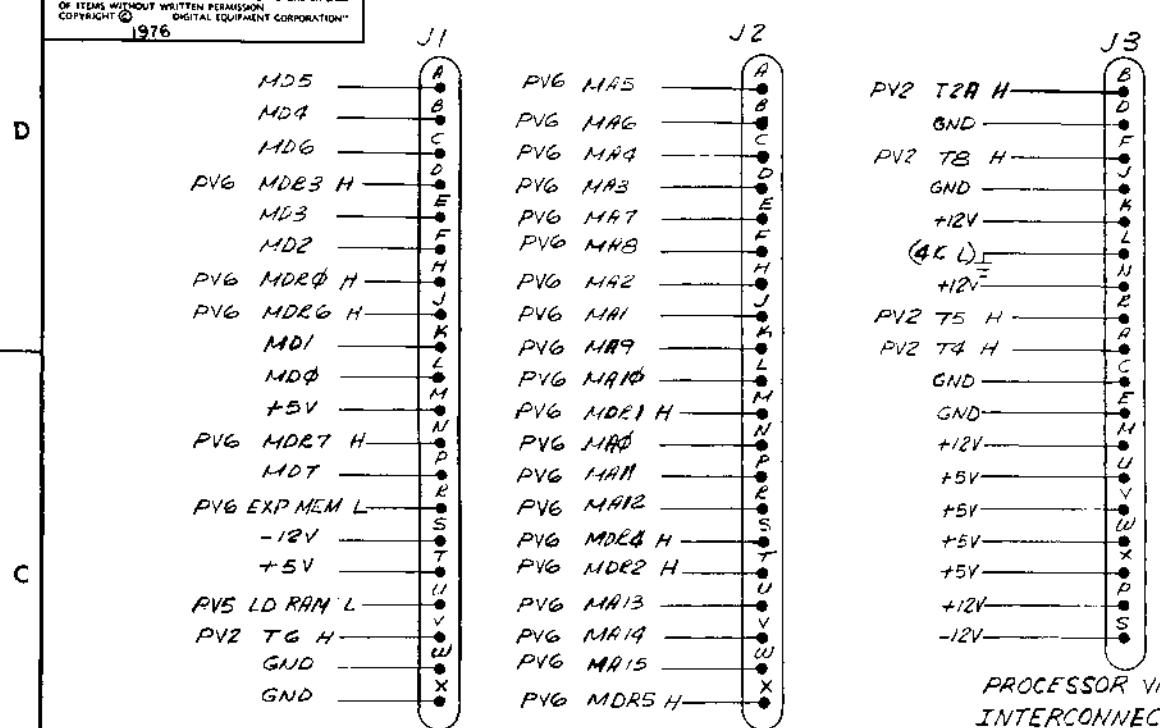 OF ITEMS WITHOUT WRITTEN PERMISSION
COPYRIGHT © DIGITAL EQUIPMENT CORPORATION"
1976
D
C
J1
MD5 A
MD4 B
MD6 C
PV6 MDR3 H D
MD3 E
MD2 F
PV6 MDRØ H H
PV6 MDR6 H J
MD1 K
MDØ L
+5V M
PV6 MDR7 H N
MD7 P
PV6 EXP MEM L R
-12V S
+5V T
PV5 LD RAM L U
PV2 T6 H V
GND W
GND X
J2
PV6 MA5 A
PV6 MA6 B
PV6 MA4 C
PV6 MA3 D
PV6 MA7 E
PV6 MA8 F
PV6 MA2 H
PV6 MA1 J
PV6 MA9 K
PV6 MA1Ø L
PV6 MDR1 H M
PV6 MAØ N
PV6 MA11 P
PV6 MA12 R
PV6 MDR4 H S
PV6 MDR2 H T
PV6 MA13 U
PV6 MA14 V
PV6 MA15 W
PV6 MDR5 H X
J3
PV2 T2A H B
GND D
PV2 T8 H F
GND J
+12V K
(4K L) L
+12V N
PV2 T5 H R
PV2 T4 H A
GND C
GND E
+12V M
+5V U
+5V V
+5V W
+5V X
+12V P
-12V S
PROCESSOR
INTERCONNEC